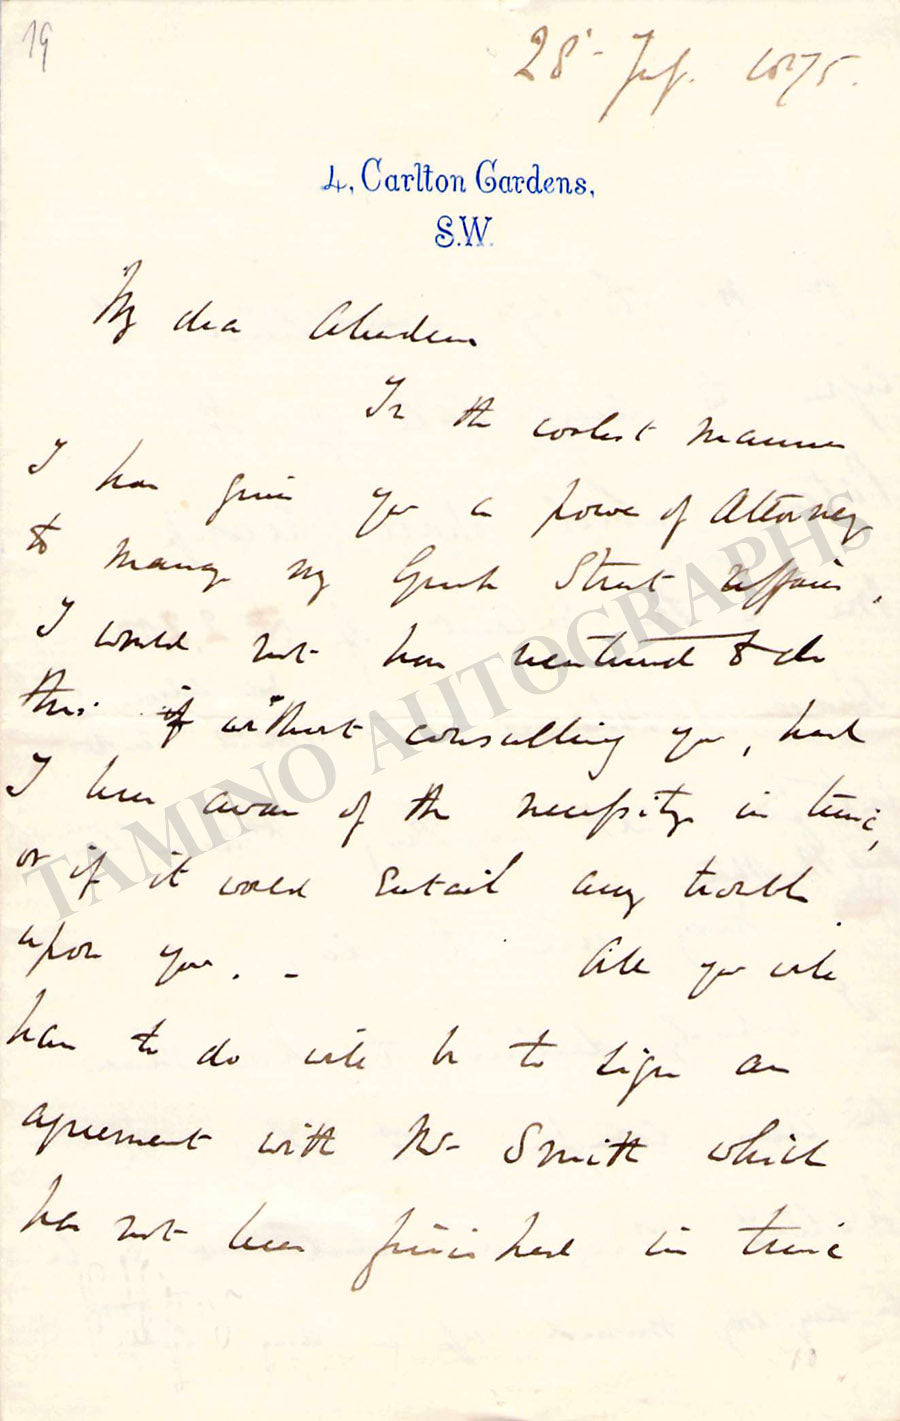 19
28 July 1875.
4, Carlton Gardens,
S.W.
My dear Aberdeen
In the coolest manner
I have given you a power of Attorney
to manage my Greek Street affairs.
I would not have ventured to do
this if without consulting you, had
I been aware of the necessity in time,
or if it would entail any trouble
upon you. - All you will
have to do will be to sign an
agreement with Mr Smith which
has not been finished in time
TAMINO AUTOGRAPHS